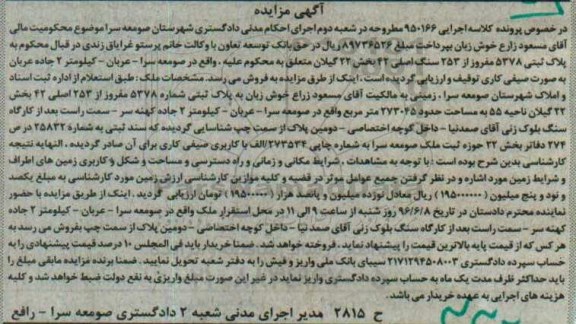 آگهی مزایده
در خصوص پرونده کلاسه اجرایی ۹۵۰۱۶۶ مطروحه در شعبه دوم اجرای احکام مدنی دادگستری شهرستان صومعه سرا موضوع محکومیت مالی
آقای مسعود زارع خوش زبان بپرداخت مبلغ ۸۹۷۳۶۵۲۶ ریال در حق بانک توسعه تعاون با وکالت خانم پرستو غرایاق زندی در قبال محکوم به
پلاک ثبتی ۵۳۷۸ مفروز از ۲۵۳ سنگ اصلی ۴۲ بخش ۲۲ گیلان متعلق به محکوم علیه . واقع در صومعه سرا - عربان - کیلومتر ۲ جاده عربان
به صورت صیفی کاری توقیف و ارزیابی گردیده است . اینک از طرق مزایده به فروش می رسد. مشخصات ملک : طبق استعلام از اداره ثبت اسناد
و املاک شهرستان صومعه سرا ، زمینی به مالکیت آقای مسعود زراع خوش زبان به پلاک ثبتی شماره ۵۳۷۸ مفروز از ۲۵۳ اصلی ۴۲ بخش
۲۲ گیلان ناحیه ۵۵ به مساحت حدود ۲۷۳۰۴۵ متر مربع واقع در صومعه سرا - عربان - کیلومتر ۲ جاده کهنه سر - سمت راست بعد از کارگاه
سنگ بلوک زنی آقای صمدنیا - داخل کوچه اختصاصی - دومین پلاک از سمت چپ شناسایی گردیده که سند ثبتی به شماره ۲۵۸۳۲ در ص
۲۷۴ دفاتر بخش ۲۲ حوزه ثبت ملک صومعه سرا به شماره چاپی ۲۷۳۵۳۴/الف با کاربری صیفی کاری برای آن صادر گردیده ، النهایه نتیجه
کارشناسی بدین شرح بوده است : با توجه به مشاهدات ، شرایط مکانی و زمانی و راه دسترسی و مساحت و شکل و کاربری زمین های اطراف
و شرایط زمین مورد اشاره و در نظر گرفتن جمیع عوامل موثر در قضیه و کلیه موازین کارشناسی ارزش زمین مورد کارشناسی به مبلغ یکصد
و نود و پنج میلیون (۱۹۵۰۰۰۰۰۰) ریال معادل نوزده میلیون و پانصد هزار (۱۹۵۰۰۰۰۰) تومان ارزیابی گردید . اینک از طریق مزایده با حضور
نماینده محترم دادستان در تاریخ ۹۶/۶/۸ روز شنبه از ساعت ۹ الی ۱۱ در محل استقرار ملک واقع در صومعه سرا - عربان - کیلومتر ۲ جاده
کهنه سر - سمت راست بعد از کارگاه سنگ بلوک زنی آقای صمد نیا - داخل کوچه اختصاصی - دومین پلاک از سمت چپ بفروش می رسد به
هر کس که از قیمت پایه بالاترین قیمت را پیشنهاد نماید . فروخته خواهد شد . ضمنا خریدار باید فی المجلس ۱۰ درصد قیمت پیشنهادی را به
حساب سپرده دادگستری ۲۱۷۱۲۹۴۵۰۸۰۰۳ سیبای بانک ملی واریز و فیش را به دفتر شعبه تحویل نمایید . ضمنا برنده مزایده مابقی مبلغ را
باید حداکثر ظرف مدت یک ماه به حساب سپرده دادگستری واریز نماید در غیر این صورت مبلغ واریزی به نفع دولت ضبط خواهد شد و کلیه
هزینه های اجرایی به عهده خریدار می باشد .
ح ۲۸۱۵ مدیر اجرای مدنی شعبه ۲ دادگستری صومعه سرا - رافع